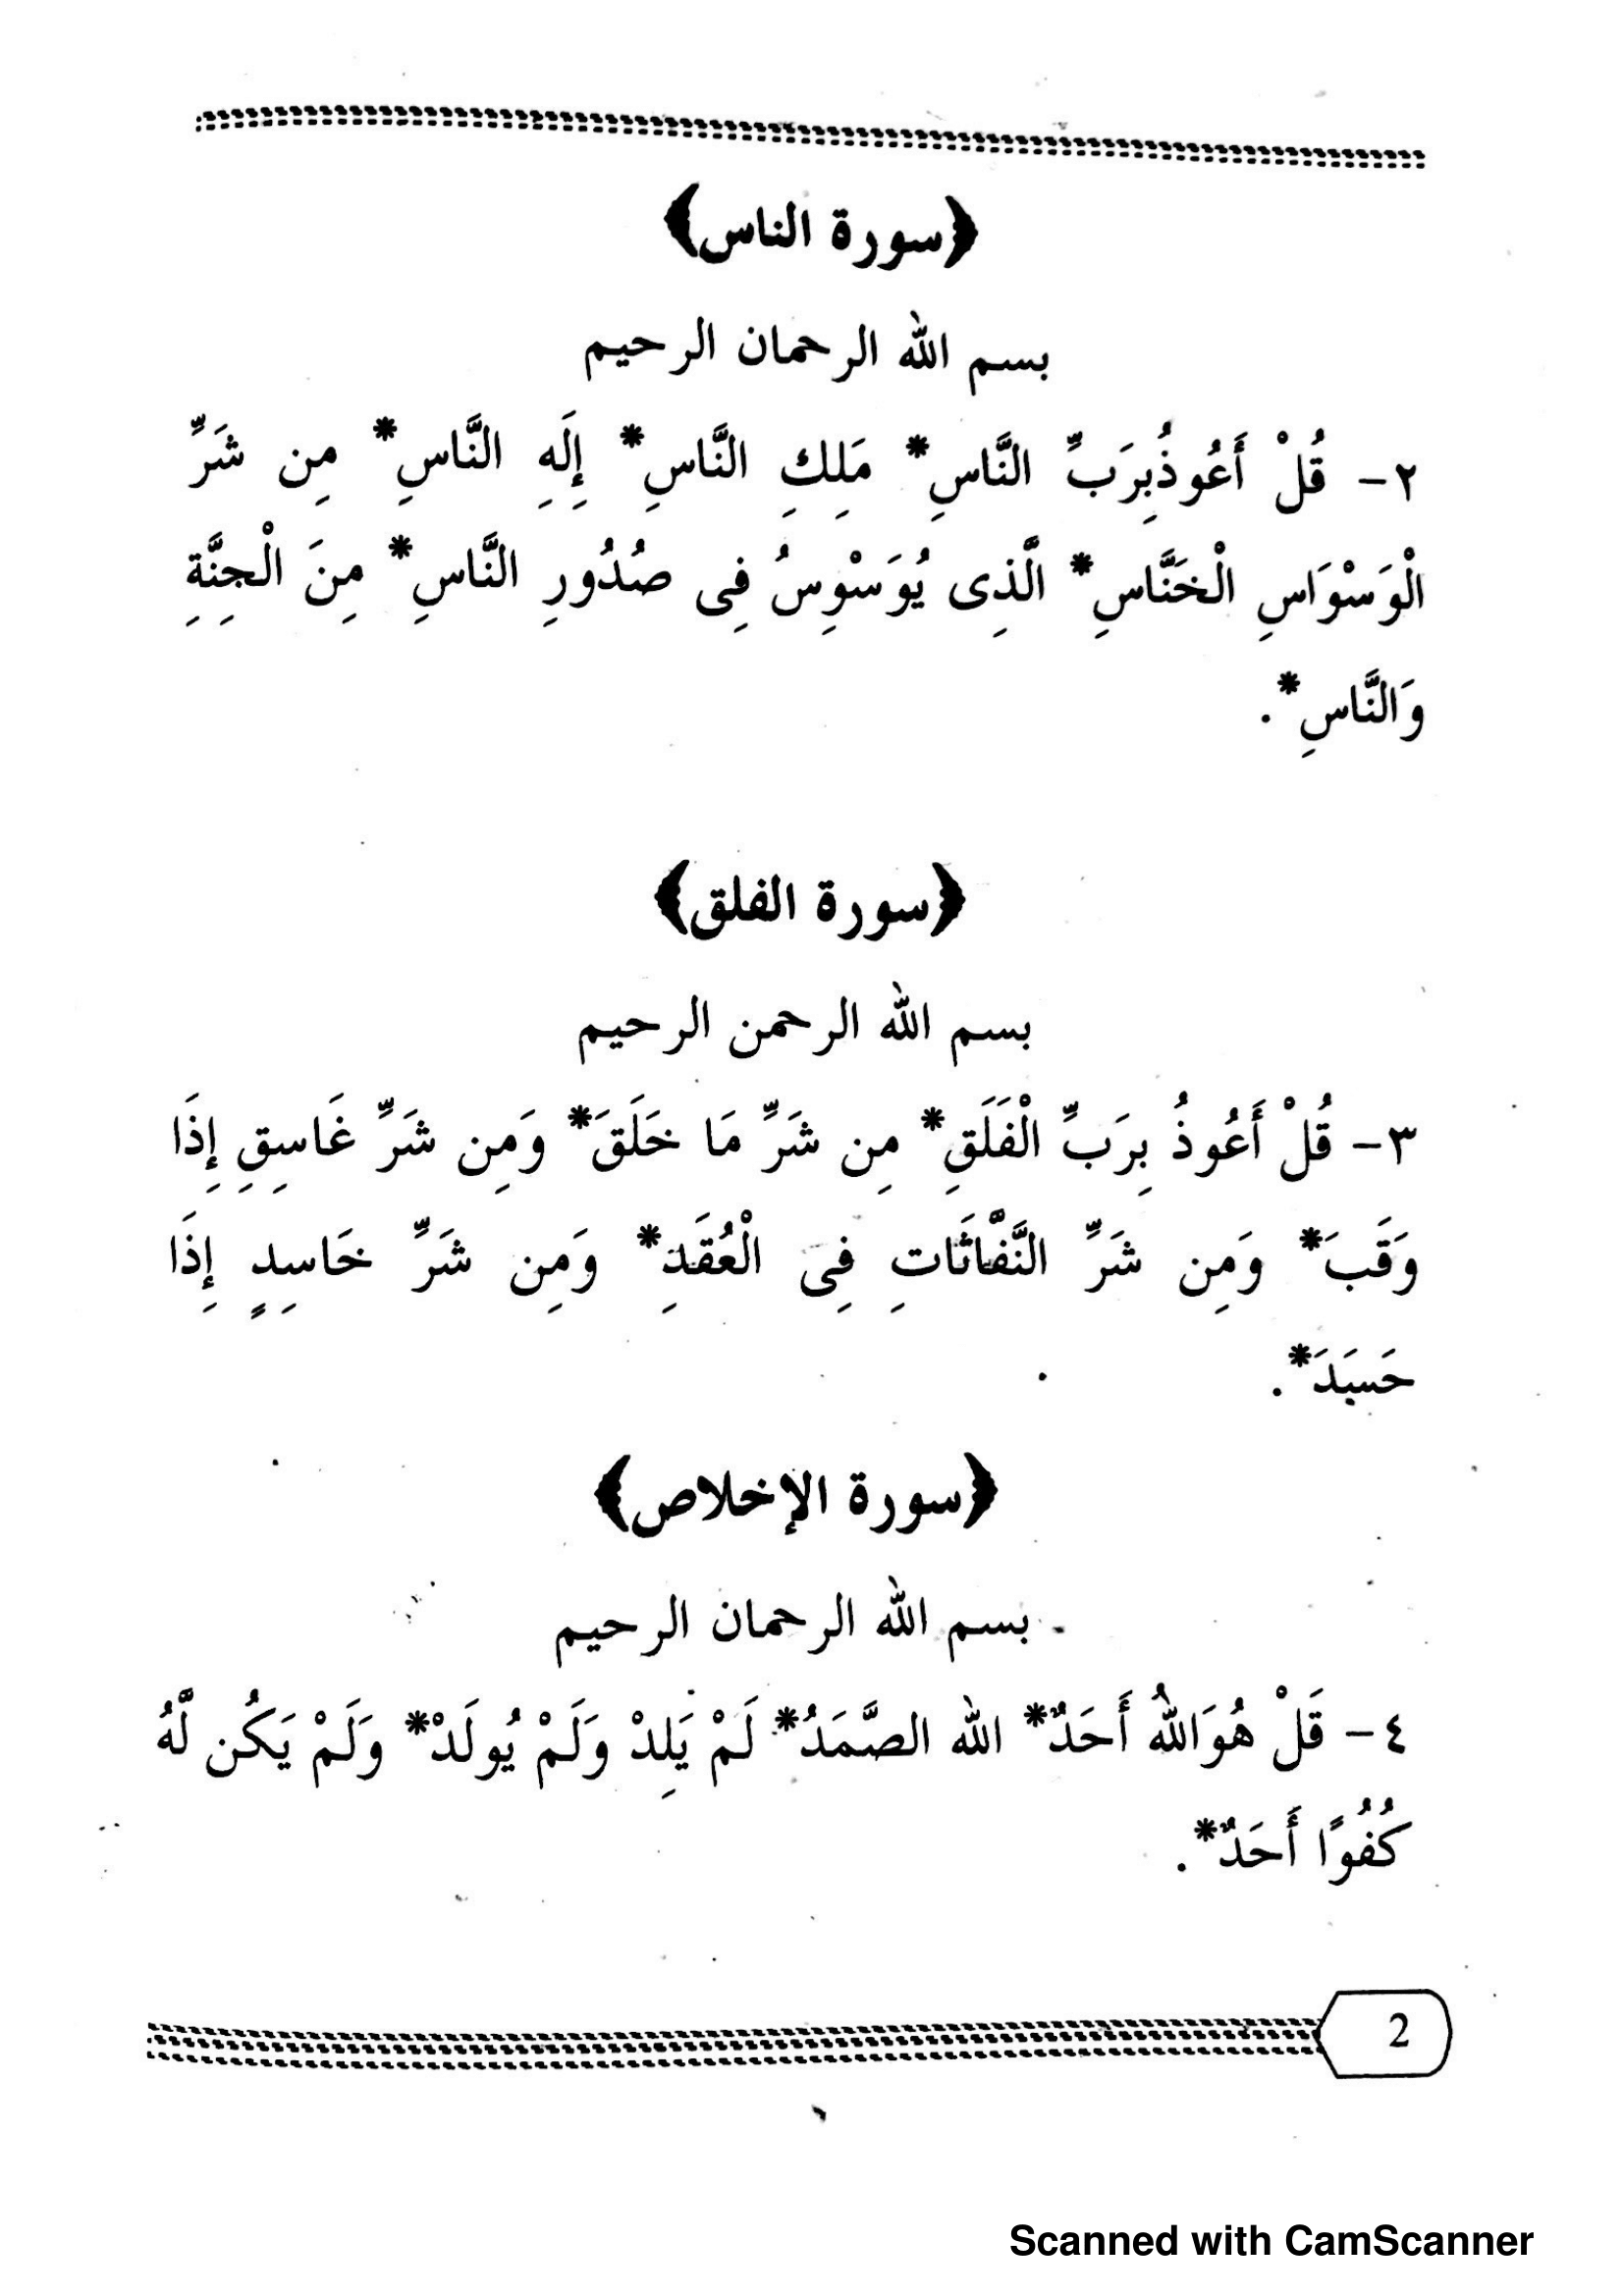 ﴿سورة الناس﴾
بسم الله الرحمان الرحيم
٢- قُلْ أَعُوذُبِرَبِّ النَّاسِ* مَلِكِ النَّاسِ* إِلَهِ النَّاسِ* مِن شَرِّ
الْوَسْوَاسِ الْخَنَّاسِ* الَّذِى يُوَسْوِسُ فِى صُدُورِ النَّاسِ* مِنَ الْجِنَّةِ
وَالنَّاسِ*.
﴿سورة الفلق﴾
بسم الله الرحمن الرحيم
٣- قُلْ أَعُوذُ بِرَبِّ الْفَلَقِ* مِن شَرِّ مَا خَلَقَ* وَمِن شَرِّ غَاسِقِ إِذَا
وَقَبَ* وَمِن شَرِّ النَّفَّاثَاتِ فِى الْعُقَدِ* وَمِن شَرِّ حَاسِدٍ إِذَا
حَسَدَ*.
﴿سورة الإخلاص﴾
بسم الله الرحمان الرحيم
٤- قَلْ هُوَاللهُ أَحَدٌ* الله الصَّمَدُ* لَمْ يَلِدْ وَلَمْ يُولَدْ* وَلَمْ يَكُن لَّهُ
كُفُوًا أَحَدٌ*.
2
Scanned with CamScanner